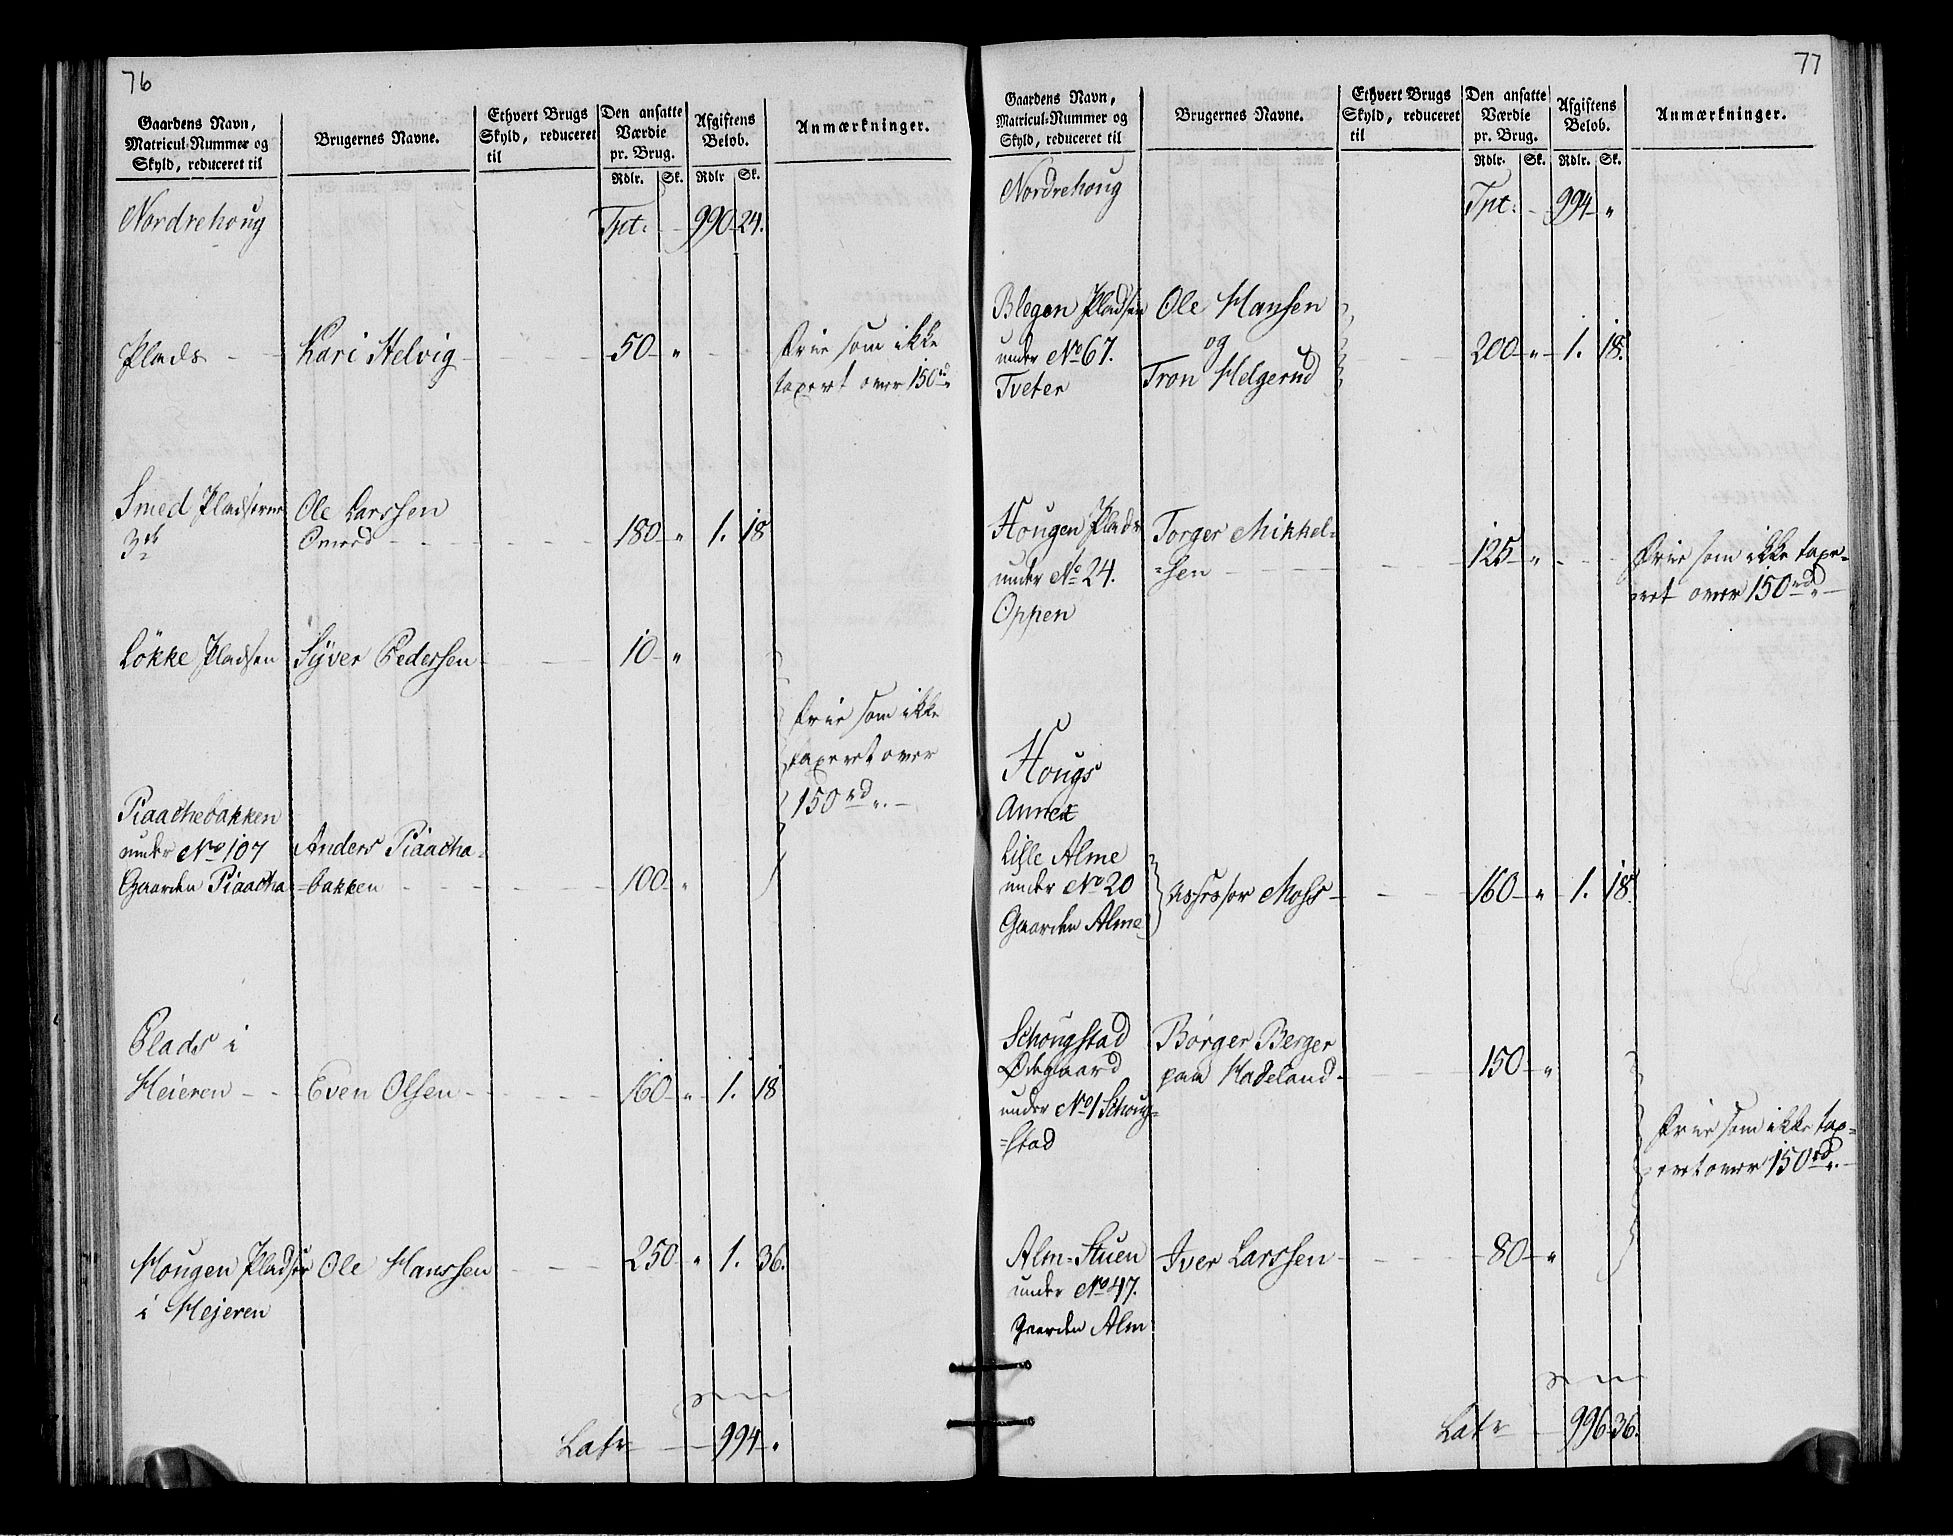 76
Gaardens Navn, Matricul-Nummer og Skyld, reduceret til
Brugernes Navne.
Ethvert Brugs Skyld, reduceret til
Den ansatte Værdie pr. Brug.
Afgiftens Belob.
Anmærkninger.
Rdlr. Sk. Rdlr Sk.
Nordrehoug Tpt: - 990 24.
Plads - - Kari Helvig - 50 - „ - - frie som ikke
taxeret over 150 rd „
Smed Pladserne Ole Larssen
3de - - - 180 - „ 1. 18
Lökke Pladsen Syver Pedersen - - 10 - „
frie som ikke
taxeret over
150 rd „. -
Piaachebakken
under No 107 Anders Piaacha-
Gaarden Piaacha =bakken - - - 100 - „
Plads i
Heieren - - Even Olsen - - - 160 - „ 1. 18
Hougen Pladser Ole Hanssen - - 250 „ 1. 36.
i Hejeren
Latr - - 994 - „
77
Gaardens Navn, Matricul-Nummer og Skyld, reduceret til
Brugernes Navne.
Ethvert Brugs Skyld, reduceret til
Den ansatte Værdie pr. Brug.
Afgiftens Belob.
Anmærkninger.
Rdlr. Sk. Rdlr. Sk.
Nordrehoug Tpt: - 994 - „
Blegen Pladsen Ole Hansen
under No 67. og 200 - „ - 1. 18.
Tveter Tron Helgerud
Hougen Plads Torger Mikkel=
under No 24. =sen - - - 125 - „ - - frie som ikke taxe-
Oppen ret over 150 rd „ -
Hougs
Annex
Lille Alme
under No 20 Assessor Moss - - - 160 - „ 1. 18.
Gaarden Alme
Schougstad Börger Berger
Ödegaard paa Hadeland - - 150 - „
under No 1 Schoug=
=stad
frie som ikke tax=
eret over 150 rd „. -
Alm-Stuen Iver Larssen - - 80 - „
under No 47.
Gaarden Alm
Latr - 996 36.